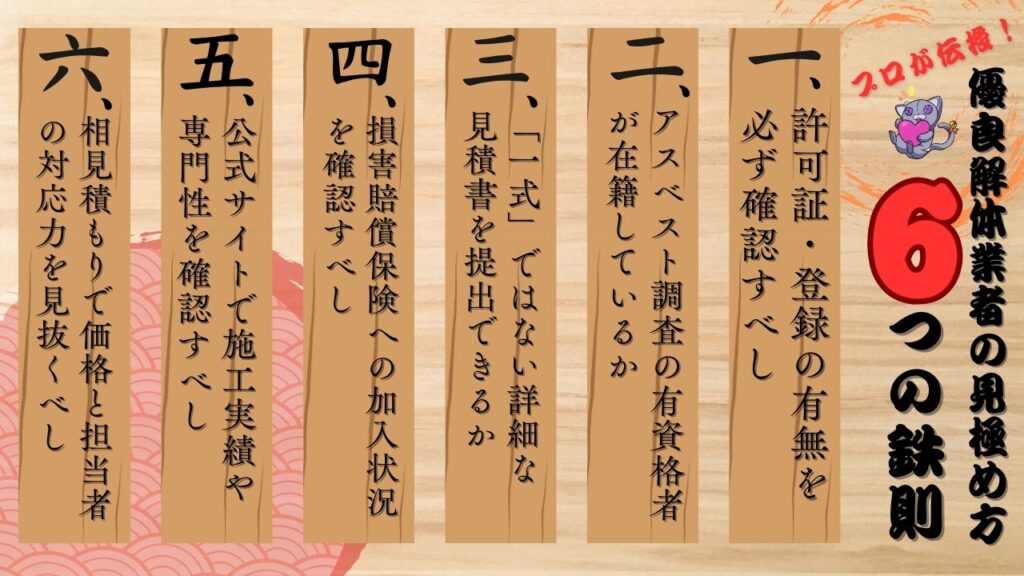 プロが伝授！
優良解体業者の見極め方
6つの鉄則
一、許可証・登録の有無を
必ず確認すべし
二、アスベスト調査の有資格者
が在籍しているか
三、「一式」ではない詳細な
見積書を提出できるか
四、損害賠償保険への加入状況
を確認すべし
五、公式サイトで施工実績や
専門性を確認すべし
六、相見積もりで価格と担当者
の対応力を見抜くべし